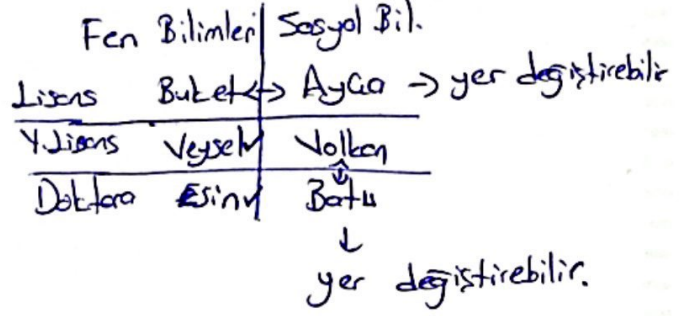 Fen Bilimleri Sosyal Bil.
Lisans Buket ↔ Ayça → yer değiştirebilir
Y.Lisans Veysel✓ Volkan
↕
Doktora Esin✓ Batu
↓
yer değiştirebilir.